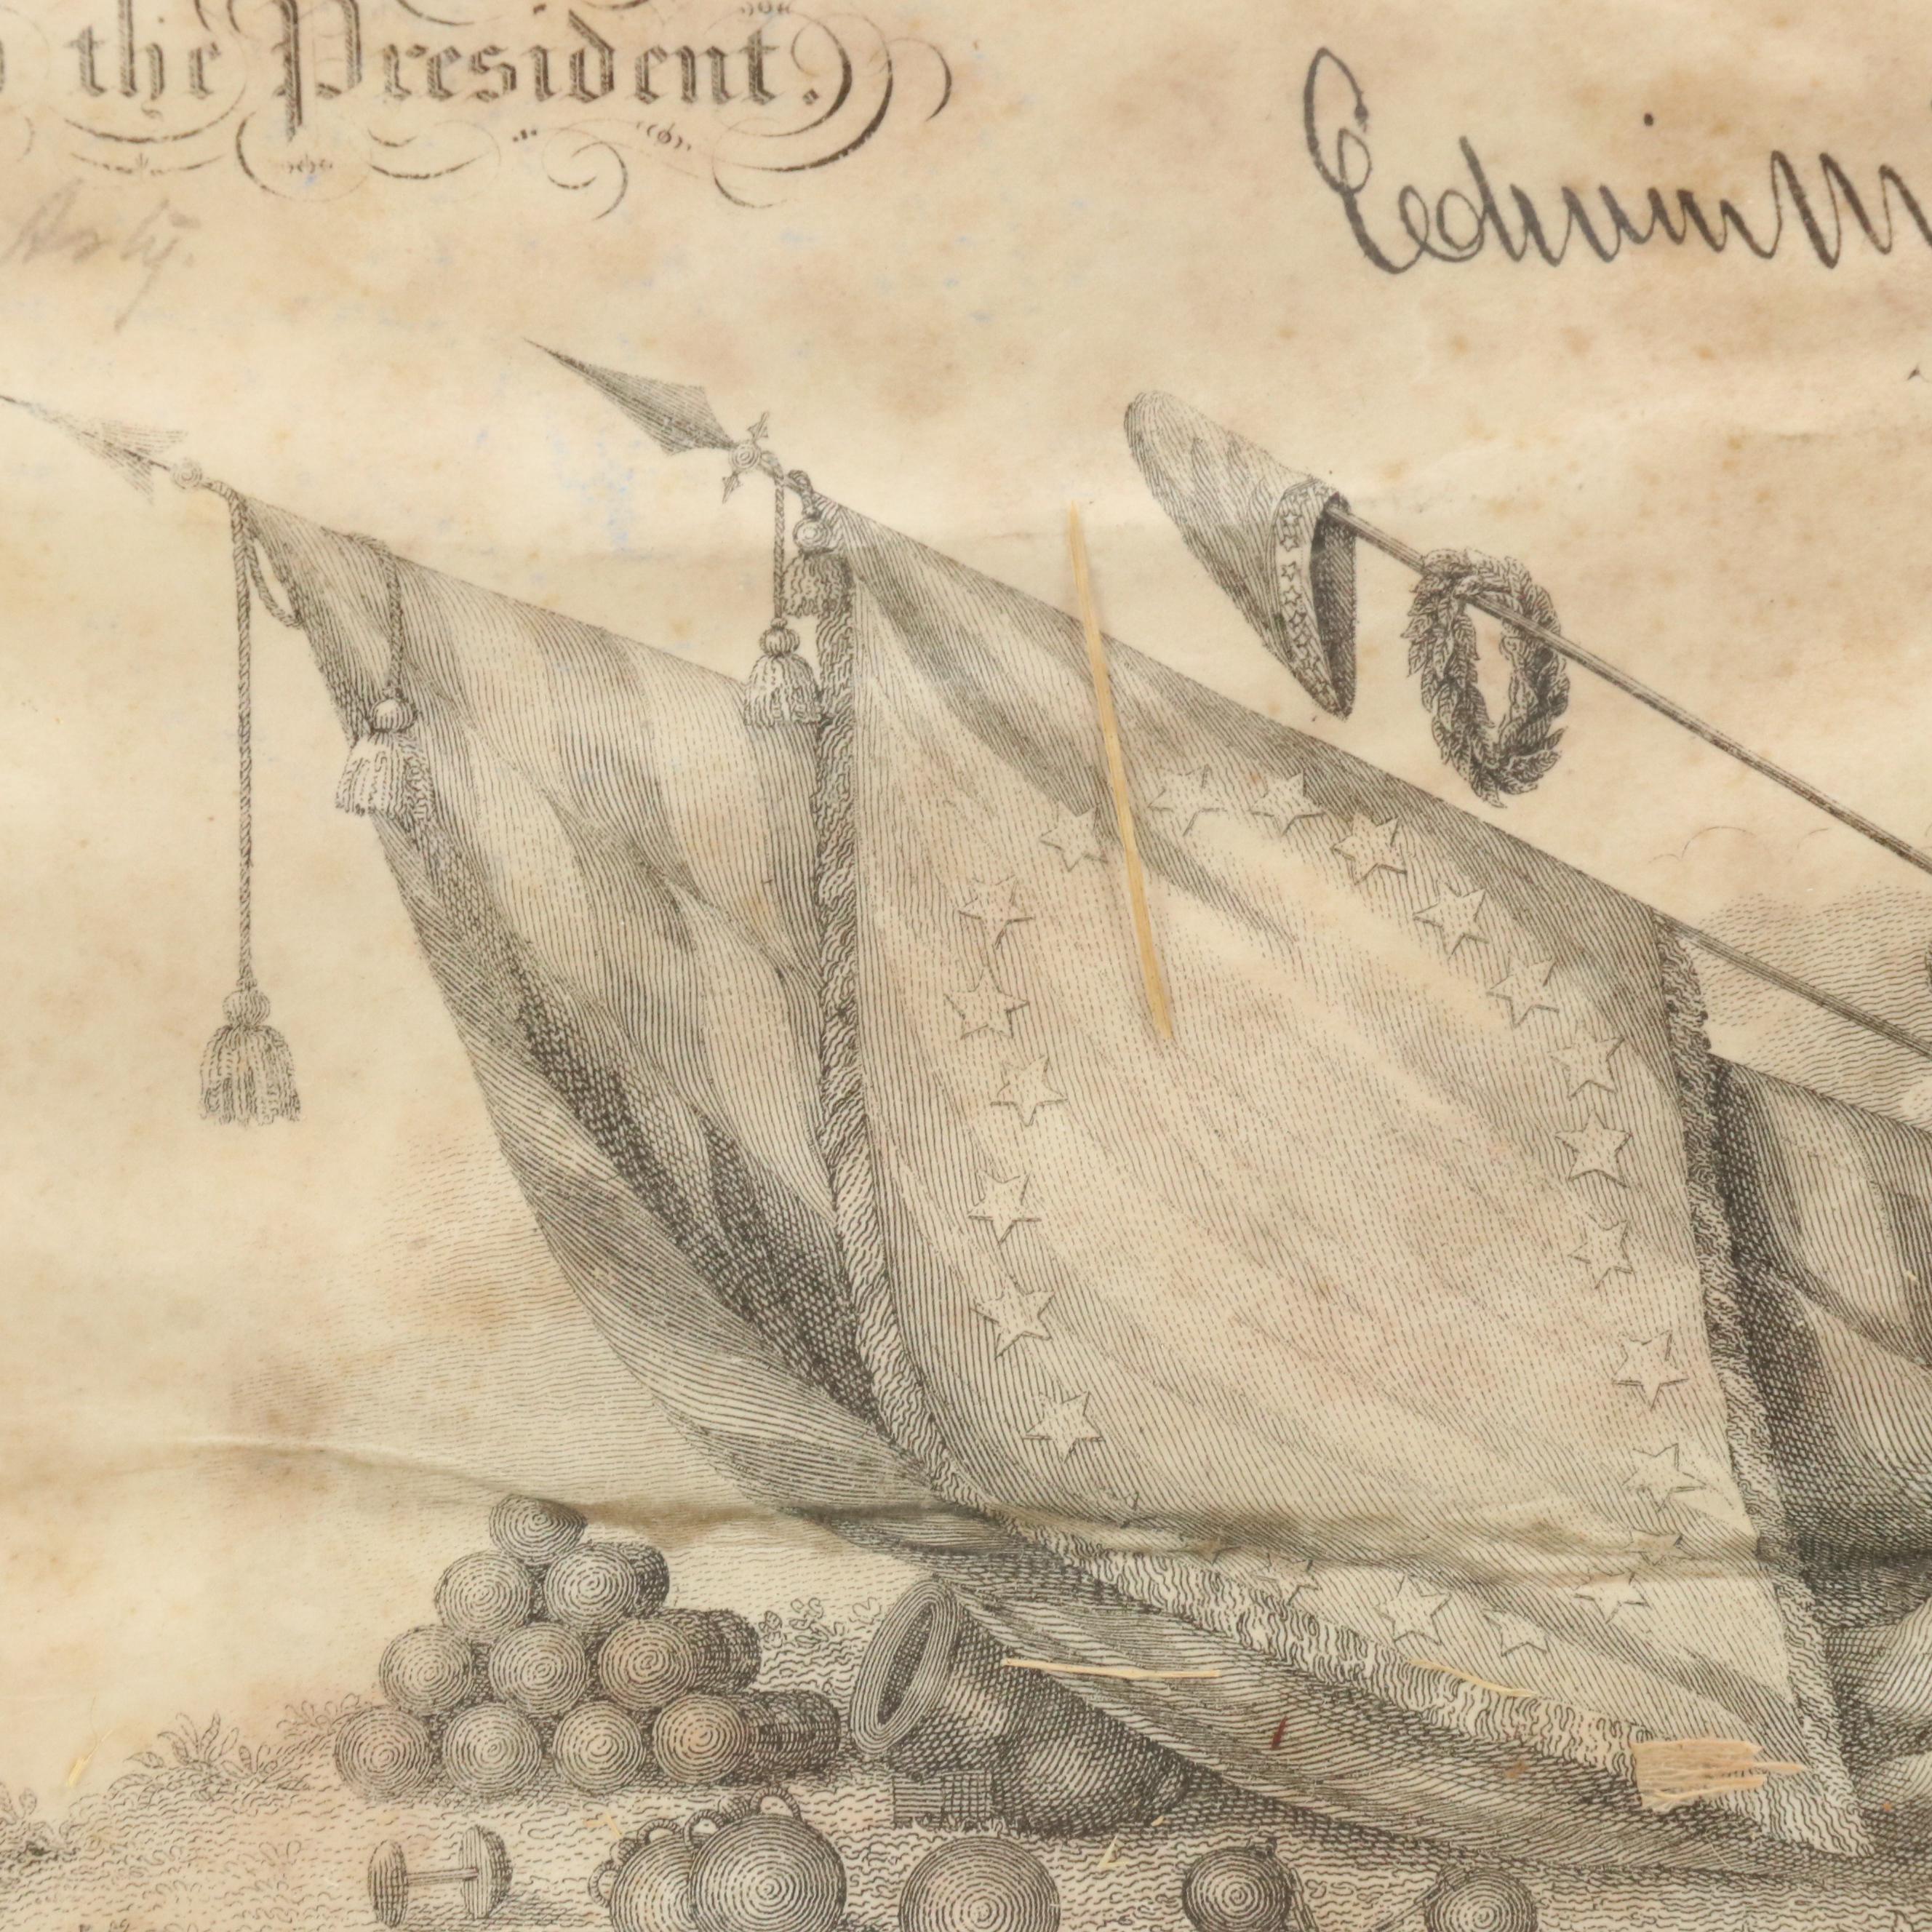 the President.
Edwin M